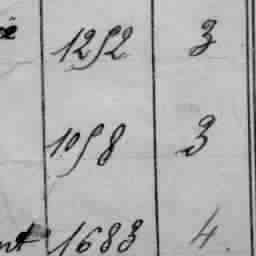 1252 3
1058 3
nt 1683 4.